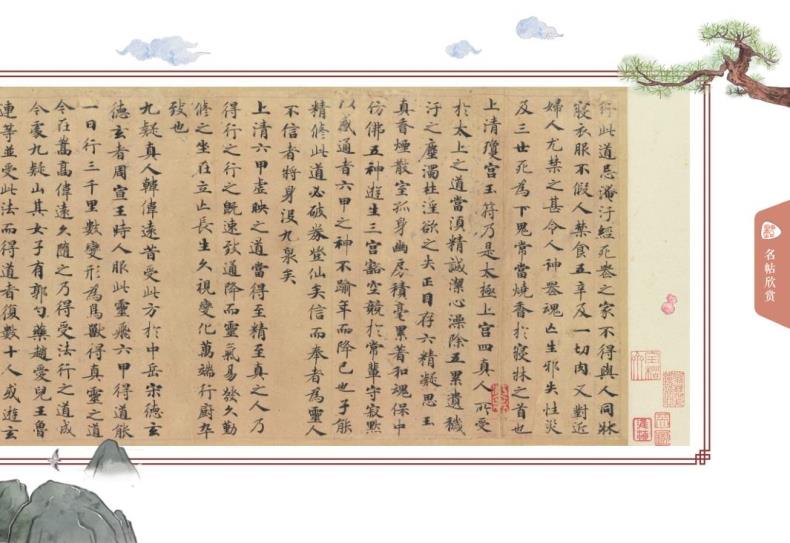 行此道忌淹汙經死喪之家不得與人同牀
寢衣服不假人禁食五辛及一切肉又對近
婦人尤禁之甚令人神喪魂亡生邪失性災
及三世死為下鬼常當燒香於寢牀之首也
上清瓊宮玉符乃是太極上宮四真人所受
於太上之道當須精誠潔心澡除五累遺穢
汙之塵濁杜淫欲之失正目存六精凝思玉
真香煙散室孤身幽房積毫累著和魂保中
仿佛五神遊生三宮豁空競於常輩守寂默
以感通者六甲之神不踰年而降已也子能
精修此道必破券登仙矣信而奉者為靈人
不信者將身沒九泉矣
上清六甲虛映之道當得至精至真之人乃
得行之行之既速致通降而靈氣易發久勤
修之坐在立亡長生久視變化萬端行廚卒
致也
九疑真人韓偉遠昔受此方於中岳宋德玄
德玄者周宣王時人服此靈飛六甲得道能
一日行三千里數變形為鳥獸得真靈之道
今在嵩高偉遠久隨之乃得受法行之道成
今處九疑山其女子有郭勺藥趙愛兒王魯
連等並受此法而得道者復數十人或遊玄
名帖欣赏